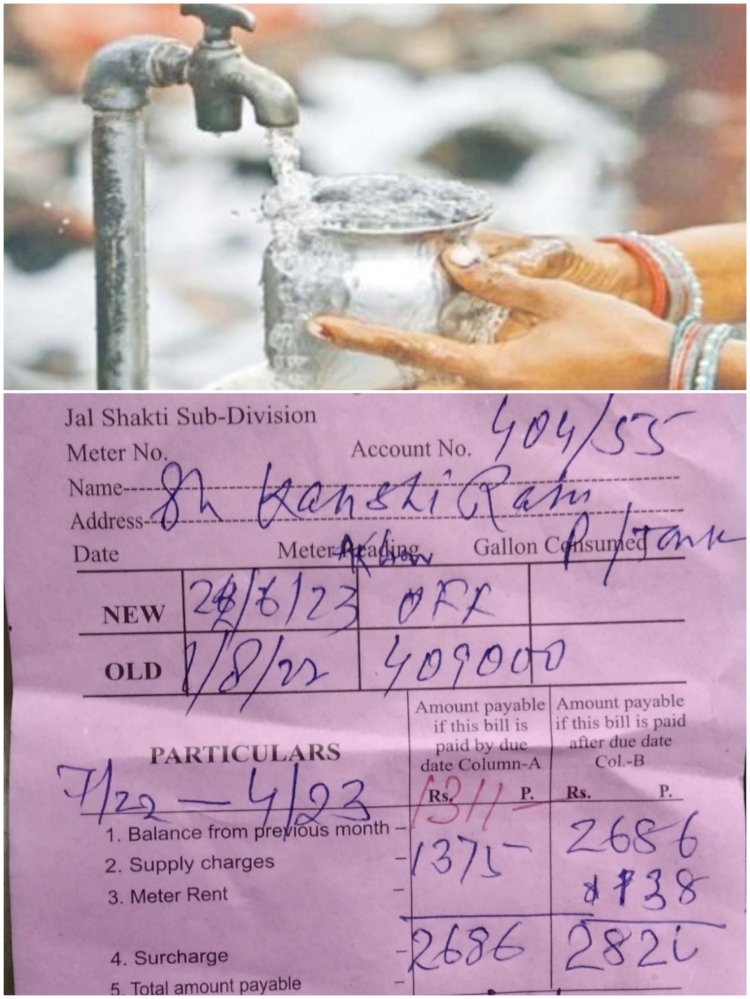 Jal Shakti Sub-Division
Meter No. Account No. 404/55
Name Sh Kanshi Ram
Address P/Tank
Date Meter Reading Gallon Consumed
NEW 28/6/23 OFF
OLD 1/8/22 409000
PARTICULARS
Amount payable if this bill is paid by due date Column-A
Amount payable if this bill is paid after due date Col.-B
7/22 — 4/23
Rs. P. Rs. P.
1. Balance from previous month – 1311 2686
2. Supply charges – 1375 138
3. Meter Rent –
4. Surcharge – 2686 282
5. Total amount payable –